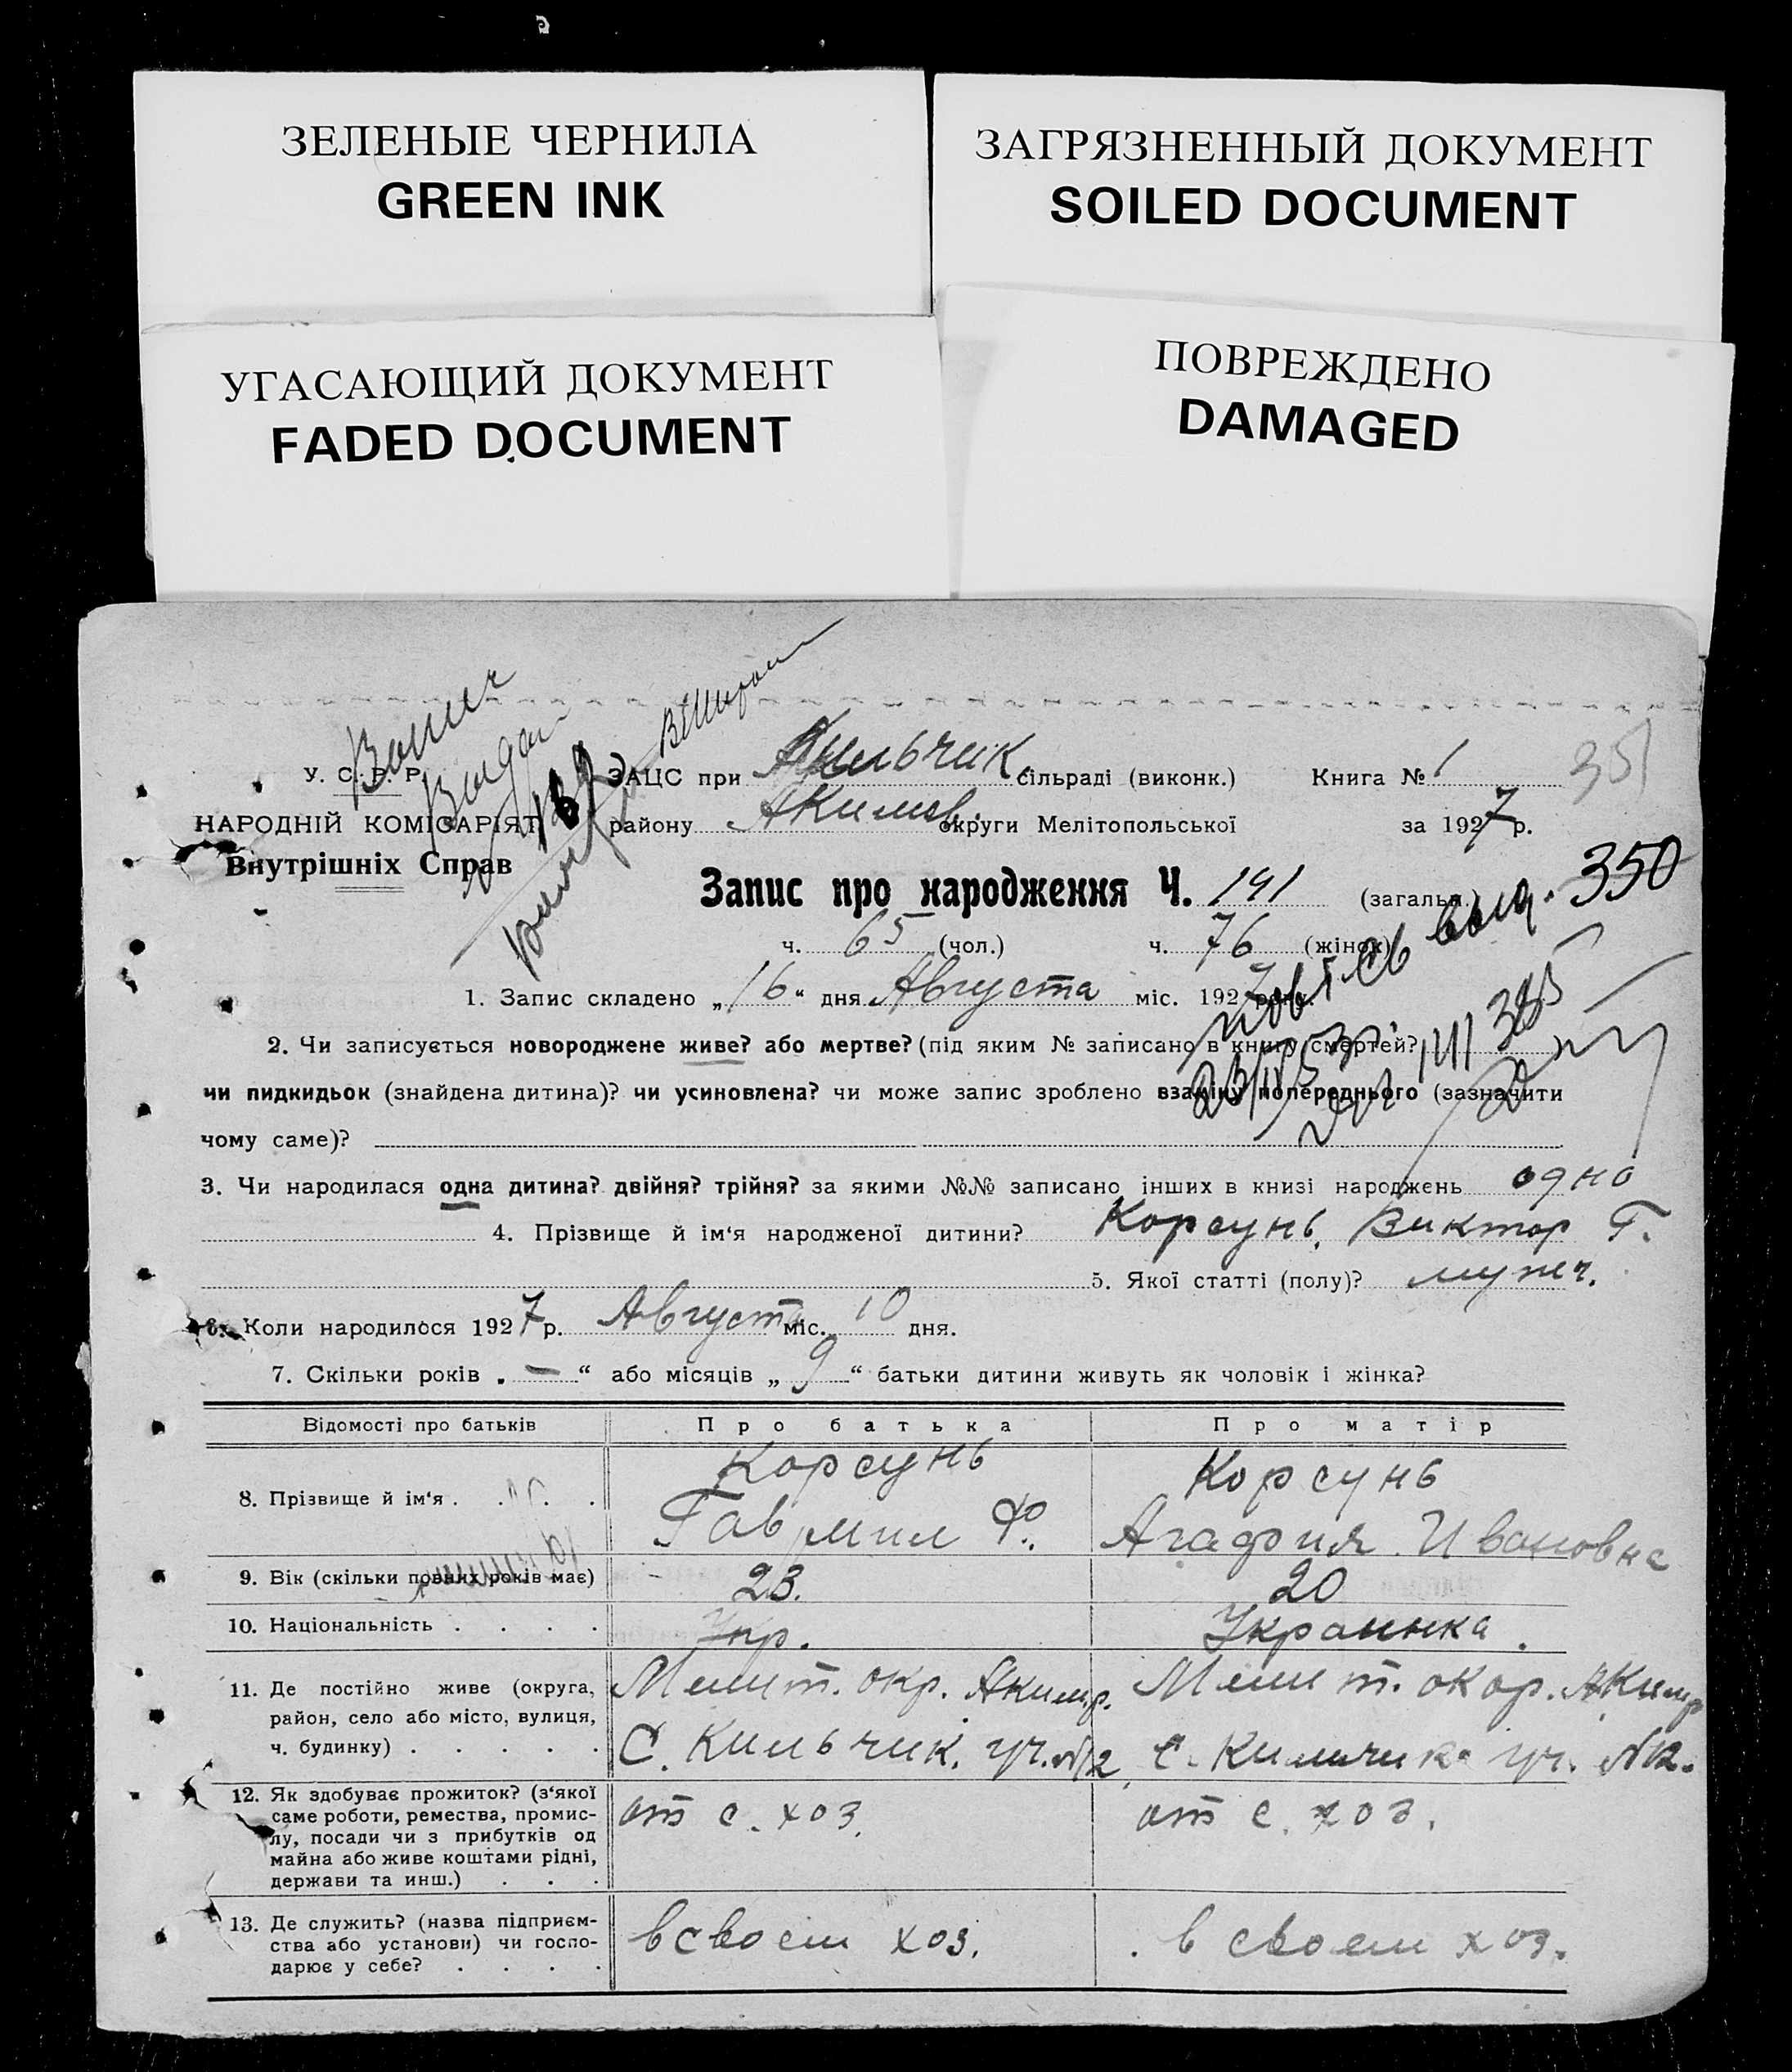 ЗЕЛЕНЫЕ ЧЕРНИЛА
GREEN INK
ЗАГРЯЗНЕННЫЙ ДОКУМЕНТ
SOILED DOCUMENT
УГАСАЮЩИЙ ДОКУМЕНТ
FADED DOCUMENT
ПОВРЕЖДЕНО
DAMAGED
У. С. Р. Р.
НАРОДНІЙ КОМІСАРІЯТ
Внутрішніх Справ
ЗАЦС при Кильчик. сільраді (виконк.) Книга № 1 351
району Акимов. округи Мелітопольської за 1927 р.
Запис про народження Ч. 141 (загальн.)
ч. 65 (чол.) ч. 76 (жінок)
повт. св выд. 350
1. Запис складено „16“ дня Августа міс. 1927 року.
2. Чи записується новороджене живе? або мертве? (під яким № записано в книгу смертей?
чи пидкидьок (знайдена дитина)? чи усиновлена? чи може запис зроблено взаміну попереднього (зазначити
чому саме)?
3. Чи народилася одна дитина? двійня? трійня? за якими №№ записано інших в книзі народжень одно
4. Прізвище й ім‘я народженої дитини? Корсунь, Виктор Г.
5. Якої статті (полу)? мужч.
6. Коли народилося 1927 р. Августа міс. 10 дня.
7. Скільки років „ — “ або місяців „ 9 “ батьки дитини живуть як чоловік і жінка?
Відомості про батьків Про батька Про матір
8. Прізвище й ім‘я . . . . Корсунь Корсунь
Гавриил Ф. Агафия Ивановна
9. Вік (скільки повних років має) 23. 20
10. Національність . . . . Укр. Украинка.
11. Де постійно живе (округа, Мелит. окр. Аким.р. Мелит. окр. Аким.р
район, село або місто, вулиця,
ч. будинку) . . . . . С. Кильчик. уч. №2 С. Кильчик уч. №2.
12. Як здобуває прожиток? (з‘якої
саме роботи, ремества, промис- от с. хоз. от с. хоз.
лу, посади чи з прибутків од
майна або живе коштами рідні,
держави та инш.) . . .
13. Де служить? (назва підприєм-
ства або установи) чи госпо- в своем хоз. в своем хоз.
дарює у себе? . . . .